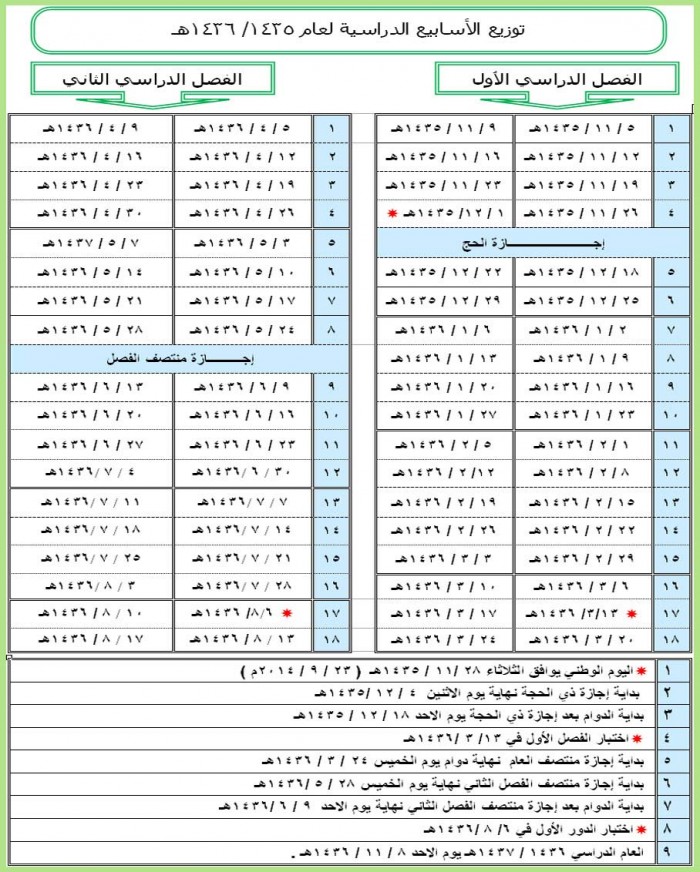 توزيع الأسابيع الدراسية لعام ١٤٣٥/ ١٤٣٦هـ
الفصل الدراسي الأول
١ ٥ / ١١ / ١٤٣٥هـ ٩ / ١١ / ١٤٣٥هـ
٢ ١٢ / ١١ / ١٤٣٥هـ ١٦ / ١١ / ١٤٣٥هـ
٣ ١٩ / ١١ / ١٤٣٥هـ ٢٣ / ١١ / ١٤٣٥هـ
٤ ٢٦ / ١١ / ١٤٣٥هـ ١ / ١٢/ ١٤٣٥هـ
إجـــازة الحج
٥ ١٨ / ١٢ / ١٤٣٥هـ ٢٢ / ١٢ / ١٤٣٥هـ
٦ ٢٥ / ١٢ / ١٤٣٥هـ ٢٩ / ١٢ / ١٤٣٥هـ
٧ ٢ / ١ / ١٤٣٦هـ ٦ / ١ / ١٤٣٦هـ
٨ ٩ / ١ / ١٤٣٦هـ ١٣ / ١ / ١٤٣٦هـ
٩ ١٦ / ١ / ١٤٣٦هـ ٢٠ / ١ / ١٤٣٦هـ
١٠ ٢٣ / ١ / ١٤٣٦هـ ٢٧ / ١ / ١٤٣٦هـ
١١ ١ / ٢ / ١٤٣٦هـ ٥ / ٢ / ١٤٣٦هـ
١٢ ٨ / ٢ / ١٤٣٦هـ ١٢/ ٢ / ١٤٣٦هـ
١٣ ١٥ / ٢ / ١٤٣٦هـ ١٩ / ٢ / ١٤٣٦هـ
١٤ ٢٢ / ٢ / ١٤٣٦هـ ٢٦ / ٢ / ١٤٣٦هـ
١٥ ٢٩ / ٢ / ١٤٣٦هـ ٣ / ٣ / ١٤٣٦هـ
١٦ ٦ / ٣ / ١٤٣٦هـ ١٠ / ٣ / ١٤٣٦هـ
١٧ ١٣/ ٣/ ١٤٣٦هـ ١٧ / ٣ / ١٤٣٦هـ
١٨ ٢٠ / ٣ / ١٤٣٦هـ ٢٤ / ٣ / ١٤٣٦هـ
الفصل الدراسي الثاني
١ ٥ / ٤ / ١٤٣٦هـ ٩ / ٤ / ١٤٣٦هـ
٢ ١٢ / ٤ / ١٤٣٦هـ ١٦ / ٤ / ١٤٣٦هـ
٣ ١٩ / ٤ / ١٤٣٦هـ ٢٣ / ٤ / ١٤٣٦هـ
٤ ٢٦ / ٤ / ١٤٣٦هـ ٣٠ / ٤ / ١٤٣٦هـ
٥ ٣ / ٥ / ١٤٣٦هـ ٧ / ٥ / ١٤٣٧هـ
٦ ١٠ / ٥ / ١٤٣٦هـ ١٤ / ٥ / ١٤٣٦هـ
٧ ١٧ / ٥ / ١٤٣٦هـ ٢١ / ٥ / ١٤٣٦هـ
٨ ٢٤ / ٥ / ١٤٣٦هـ ٢٨ / ٥ / ١٤٣٦هـ
إجـــازة منتصف الفصل
٩ ٩ / ٦ / ١٤٣٦هـ ١٣ / ٦ / ١٤٣٦هـ
١٠ ١٦ / ٦ / ١٤٣٦هـ ٢٠ / ٦ / ١٤٣٦هـ
١١ ٢٣ / ٦ / ١٤٣٦هـ ٢٧ / ٦ / ١٤٣٦هـ
١٢ ٣٠ / ٦ / ١٤٣٦هـ ٤ / ٧ / ١٤٣٦هـ
١٣ ٧ / ٧ / ١٤٣٦هـ ١١ / ٧ / ١٤٣٦هـ
١٤ ١٤ / ٧ / ١٤٣٦هـ ١٨ / ٧ / ١٤٣٦هـ
١٥ ٢١ / ٧ / ١٤٣٦هـ ٢٥ / ٧ / ١٤٣٦هـ
١٦ ٢٨ / ٧ / ١٤٣٦هـ ٣ / ٨ / ١٤٣٦هـ
١٧ ٨/٦ /١٤٣٦هـ ١٠ / ٨ / ١٤٣٦هـ
١٨ ١٣ / ٨ / ١٤٣٦هـ ١٧ / ٨ / ١٤٣٦هـ
١ اليوم الوطني يوافق الثلاثاء ٢٨ / ١١/ ١٤٣٥هـ ( ٢٣ / ٩ / ٢٠١٤م )
٢ بداية إجازة ذي الحجة نهاية يوم الاثنين ٤ / ١٢ /١٤٣٥هـ
٣ بداية الدوام بعد إجازة ذي الحجة يوم الاحد ١٨ / ١٢ / ١٤٣٥هـ
٤ اختبار الفصل الأول في ١٣/ ٣ /١٤٣٦هـ
٥ بداية إجازة منتصف العام نهاية دوام يوم الخميس ٢٤ / ٣ / ١٤٣٦هـ
٦ بداية إجازة منتصف الفصل الثاني نهاية يوم الخميس ٢٨ / ٥ /١٤٣٦هـ
٧ بداية الدوام بعد إجازة منتصف الفصل الثاني نهاية يوم الاحد ٩ / ٦ /١٤٣٦هـ
٨ اختبار الدور الأول في ٦/ ٨ /١٤٣٦هـ
٩ العام الدراسي ١٤٣٦ / ١٤٣٧هـ يوم الاحد ٨ / ١١ / ١٤٣٦هـ .